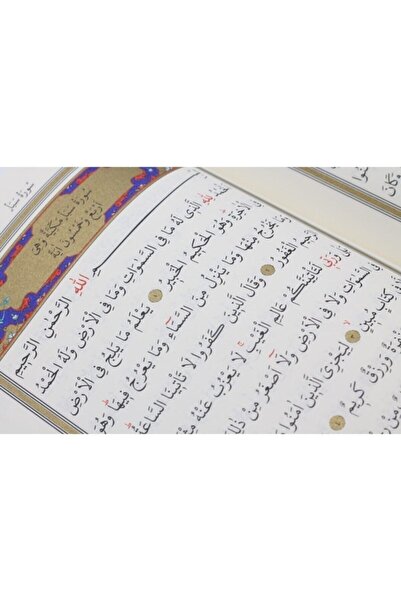 سُورَةُ سَبَأٍ
سُورَةُ سَبَأٍ مَكِّيَّةٌ وَهِىَ
اَرْبَعٌ وَخَمْسُونَ اٰيَةً
بِسْمِ اللّٰهِ الرَّحْمٰنِ الرَّحِيمِ
لِلّٰهِ الَّذِى لَهُ مَا فِى السَّمٰوَاتِ وَمَا فِى الْاَرْضِ وَلَهُ الْحَمْدُ
الْاٰخِرَةِ وَهُوَ الْحَكِيمُ الْخَبِيرُ ١ يَعْلَمُ مَا يَلِجُ فِى الْاَرْضِ
يَخْرُجُ مِنْهَا وَمَا يَنْزِلُ مِنَ السَّمَٓاءِ وَمَا يَعْرُجُ فِيهَا وَهُوَ
الْغَفُورُ ٢ وَقَالَ الَّذِينَ كَفَرُوا لَا تَأْتِينَا السَّاعَةُ
وَرَبِّى لَتَأْتِيَنَّكُمْ عَالِمِ الْغَيْبِ لَا يَعْزُبُ عَنْهُ
السَّمٰوَاتِ وَلَا فِى الْاَرْضِ وَلَٓا اَصْغَرُ مِنْ ذٰلِكَ
كِتَابٍ مُبِينٍ ٣ لِيَجْزِىَ الَّذِينَ اٰمَنُوا
وَرِزْقٌ كَرِيمٌ ٤